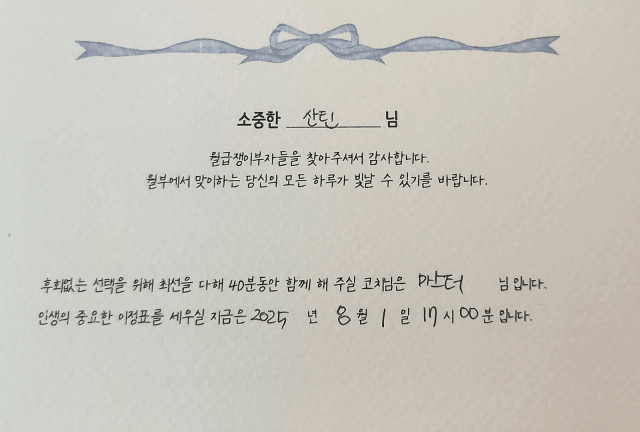 소중한 산틴 님
월급쟁이부자들을 찾아주셔서 감사합니다.
월부에서 맞이하는 당신의 모든 하루가 빛날 수 있기를 바랍니다.
후회없는 선택을 위해 최선을 다해 40분동안 함께 해 주실 코치님은 마스터 님 입니다.
인생의 중요한 이정표를 세우실 지금은 2025 년 8 월 1 일 17 시 00 분 입니다.